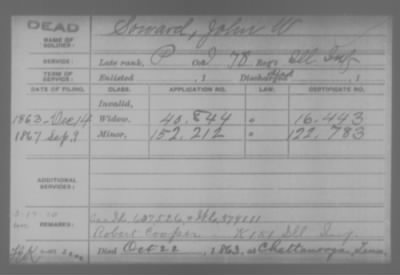 DEAD
Soward, John W
NAME OF SOLDIER:
SERVICE: Late rank, P Co. I 78 Reg't Ill Inf
TERM OF SERVICE: Enlisted , 1 Discharged Died , 1
DATE OF FILING. CLASS. APPLICATION NO. LAW. CERTIFICATE NO.
Invalid,
1863-Dec 14 Widow, 40,844 16,443
1867 Sep. 9 Minor, 152,212 122,783
ADDITIONAL SERVICES:
REMARKS:
Robert Cooper K 151 Ill Inf.
Died Oct 22, 1863, at Chattanooga, Tenn.